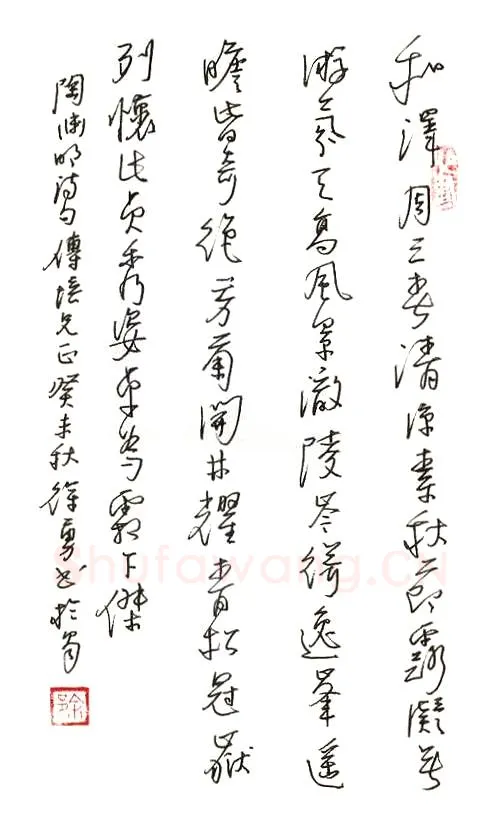 和澤周三春清涼素秋節露凝無
游氛天高風景澈陵岑聳逸峯遥
瞻皆奇絶芳菊開林耀青松冠巖
列懷此貞秀姿卓為霜下傑
陶渊明詩句傳培兄正癸未秋徐勇書於蜀
Shufawang.CN